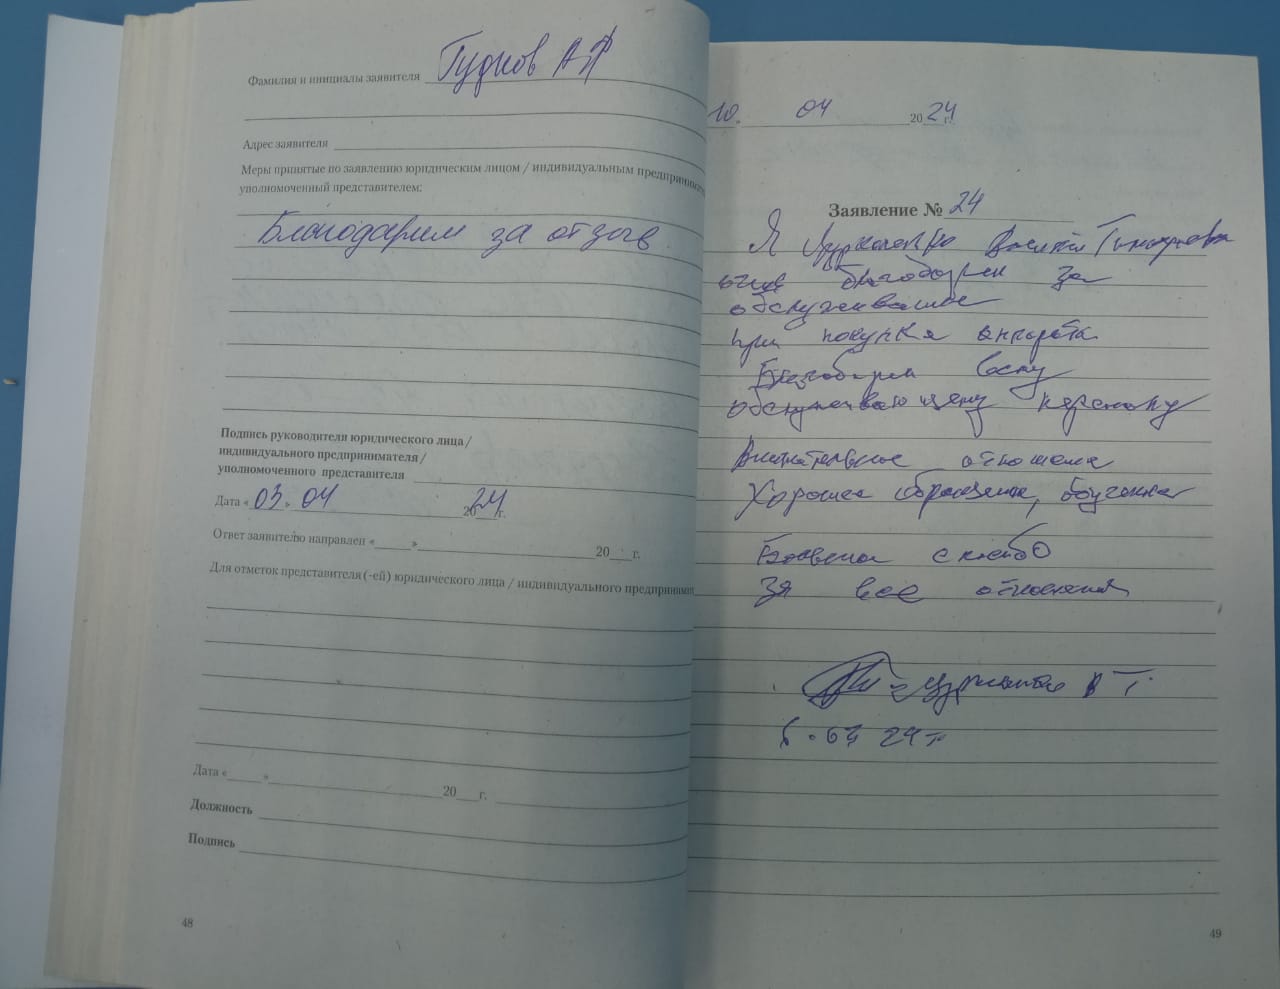 Фамилия и инициалы заявителя Гудков А.Р
Адрес заявителя
Меры принятые по заявлению юридическим лицом / индивидуальным предпринимат
уполномоченный представителем:
Благодарим за отзыв
Подпись руководителя юридического лица /
индивидуального предпринимателя /
уполномоченного представителя
Дата «03» 04 2024 г.
Ответ заявителю направлен «___»___ 20__г.
Для отметок представителя (-ей) юридического лица / индивидуального предпринимат
Дата «___»___ 20__г.
Должность
Подпись
48
10. 04 2024 г.
Заявление № 24
Я Василий
благодарен за
обслуживание
при покупке аппарата
всему
обслуживающему персоналу
Внимательное отношение
Хорошее обращение,
за все отношения
В Т.
24г
49